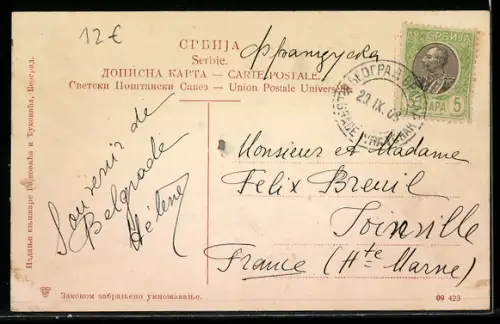 12 €
СРБИЈА
Serbie.
Француска
ДОПИСНА КАРТА — CARTE POSTALE.
Светски Поштански Савез — Union Postale Universelle
СРБИЈА
ПАРА 5
БЕОГРАД
20 IX. 05
BELGRADE
Souvenir de
Belgrade
Hélène
Monsieur et Madame
Felix Breuil
Joinville
France (Hte Marne)
Издање књижаре Рајковића и Ђуковића, Београд.
Законом забрањено умножавање.
09 423